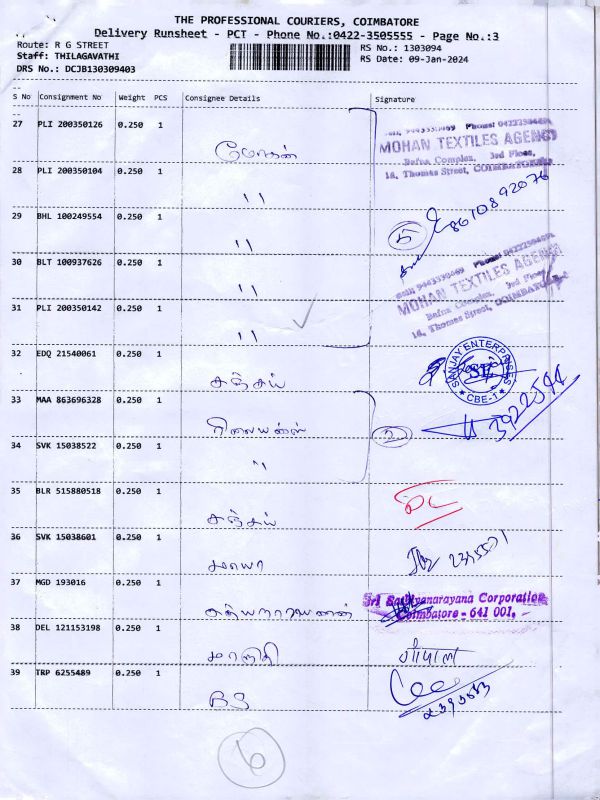 THE PROFESSIONAL COURIERS, COIMBATORE
Delivery Runsheet - PCT - Phone No.:0422-3505555 - Page No.:3
Route: R G STREET
RS No.: 1303094
Staff: THILAGAVATHI
RS Date: 09-Jan-2024
DRS No.: DCJB130309403
S No Consignment No Weight PCS Consignee Details Signature
27 PLI 200350126 0.250 1 மோகன்
MOHAN TEXTILES AGENCY
Bafna Complex, 3rd Floor,
18, Thomas Street, COIMBATORE
28 PLI 200350104 0.250 1 "
8610892076
29 BHL 100249554 0.250 1 "
5
30 BLT 100937626 0.250 1 "
MOHAN TEXTILES AGENCY
Bafna Complex, 3rd Floor,
18, Thomas Street, COIMBATORE
31 PLI 200350142 0.250 1 "
32 EDQ 21540061 0.250 1 சஞ்சய்
SANJAY ENTERPRISES
* CBE-1 *
33 MAA 863696328 0.250 1 ரிலையன்ஸ்
2
34 SVK 15038522 0.250 1 "
35 BLR 515880518 0.250 1 சஞ்சய்
36 SVK 15038601 0.250 1 மாயா
37 MGD 193016 0.250 1 சத்யநாராயணன்
Sri Sathyanarayana Corporation
Coimbatore - 641 001.
38 DEL 121153198 0.250 1 மாருதி
गोपाल
39 TRP 6255489 0.250 1
6